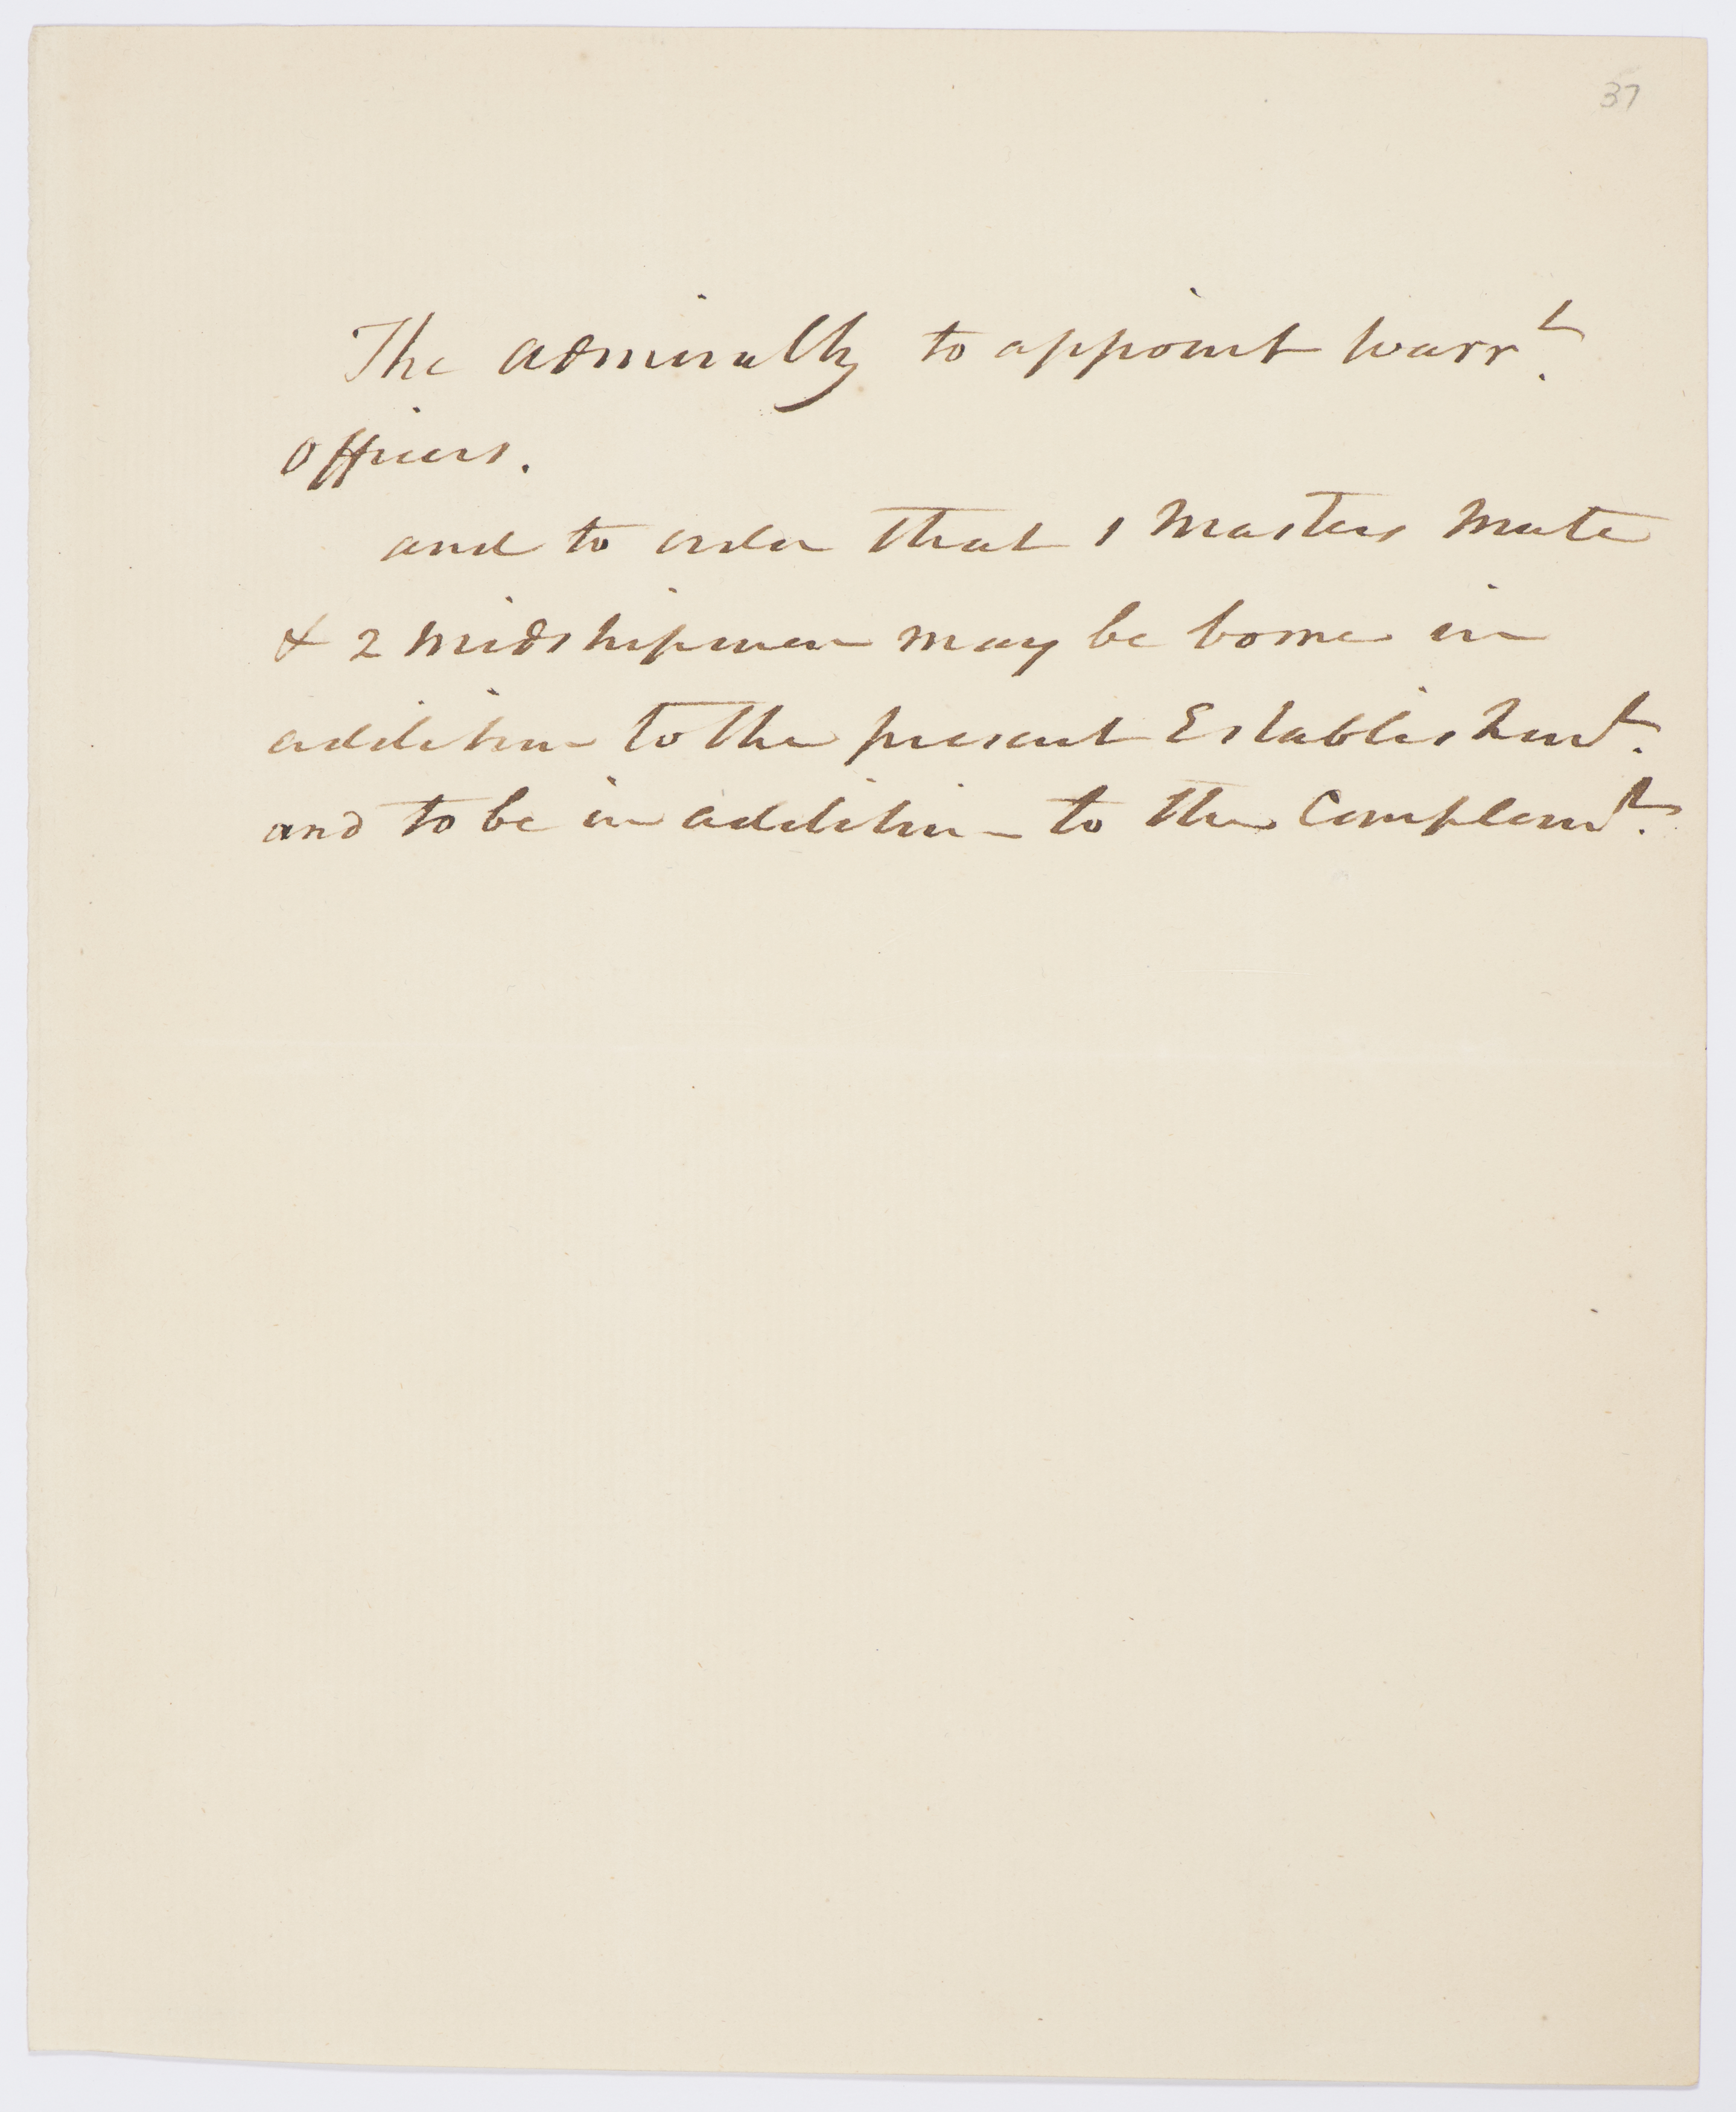 37
The Admiralty to appoint Warr.t
Officers.
and to order that 1 Masters Mate
& 2 Midshipmen may be borne in
addition to the present Establishm.t
and to be in addition to the Complem.t